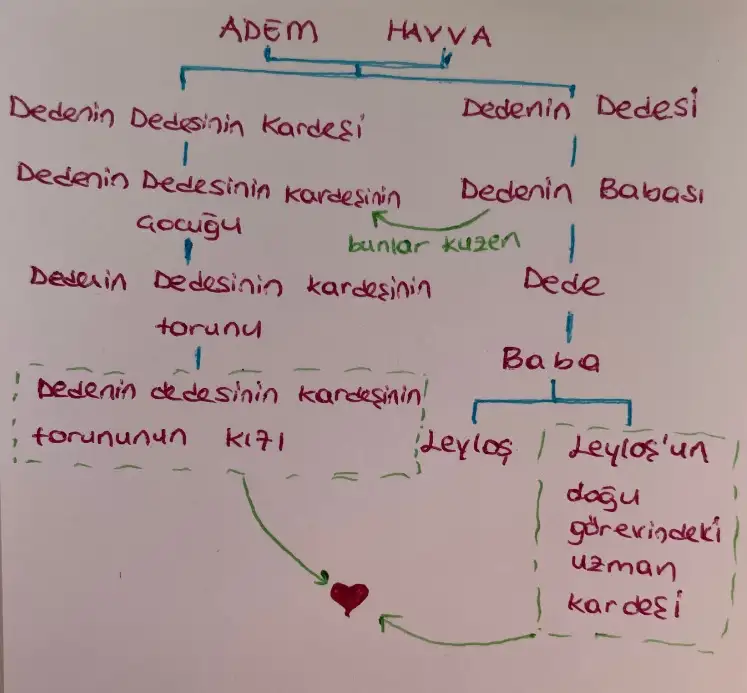 ADEM HAVVA
Dedenin Dedesinin Kardeşi
Dedenin Dedesi
Dedenin Dedesinin kardeşinin
çocuğu
Dedenin Babası
bunlar kuzen
Dedenin Dedesinin kardeşinin
torunu
Dede
Baba
Dedenin dedesinin kardeşinin
torununun kızı
Leyloş
Leyloş'un
doğu
görevindeki
uzman
kardeşi